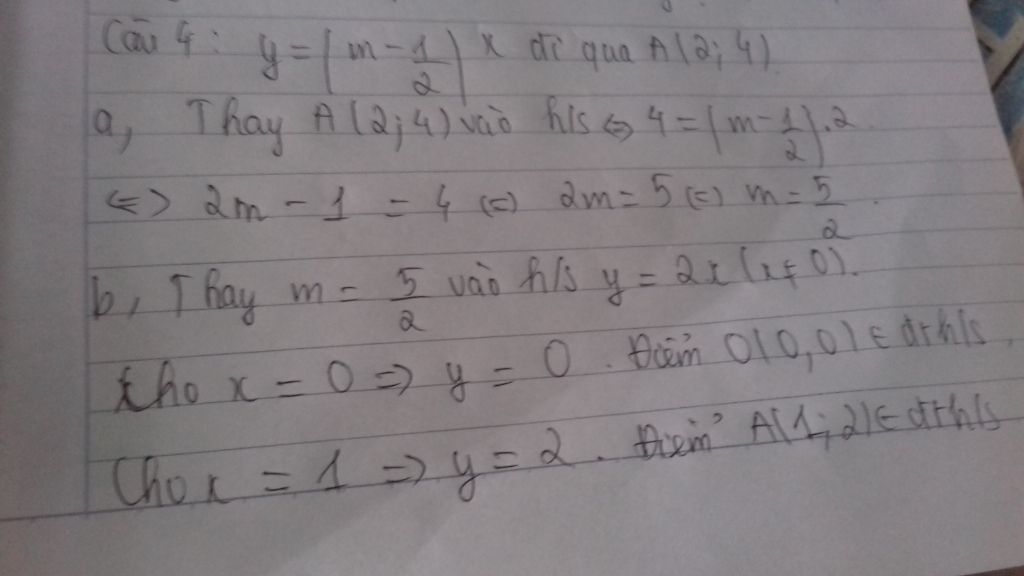 Câu 4: y = (m - 1/2) x đi qua A(2; 4)
a, Thay A(2; 4) vào h/s <=> 4 = (m - 1/2).2.
<=> 2m - 1 = 4 <=> 2m = 5 <=> m = 5/2.
b, Thay m = 5/2 vào h/s y = 2x (x ≠ 0).
Cho x = 0 => y = 0. Điểm O(0,0) ∈ đths.
Cho x = 1 => y = 2. Điểm A(1; 2) ∈ đths